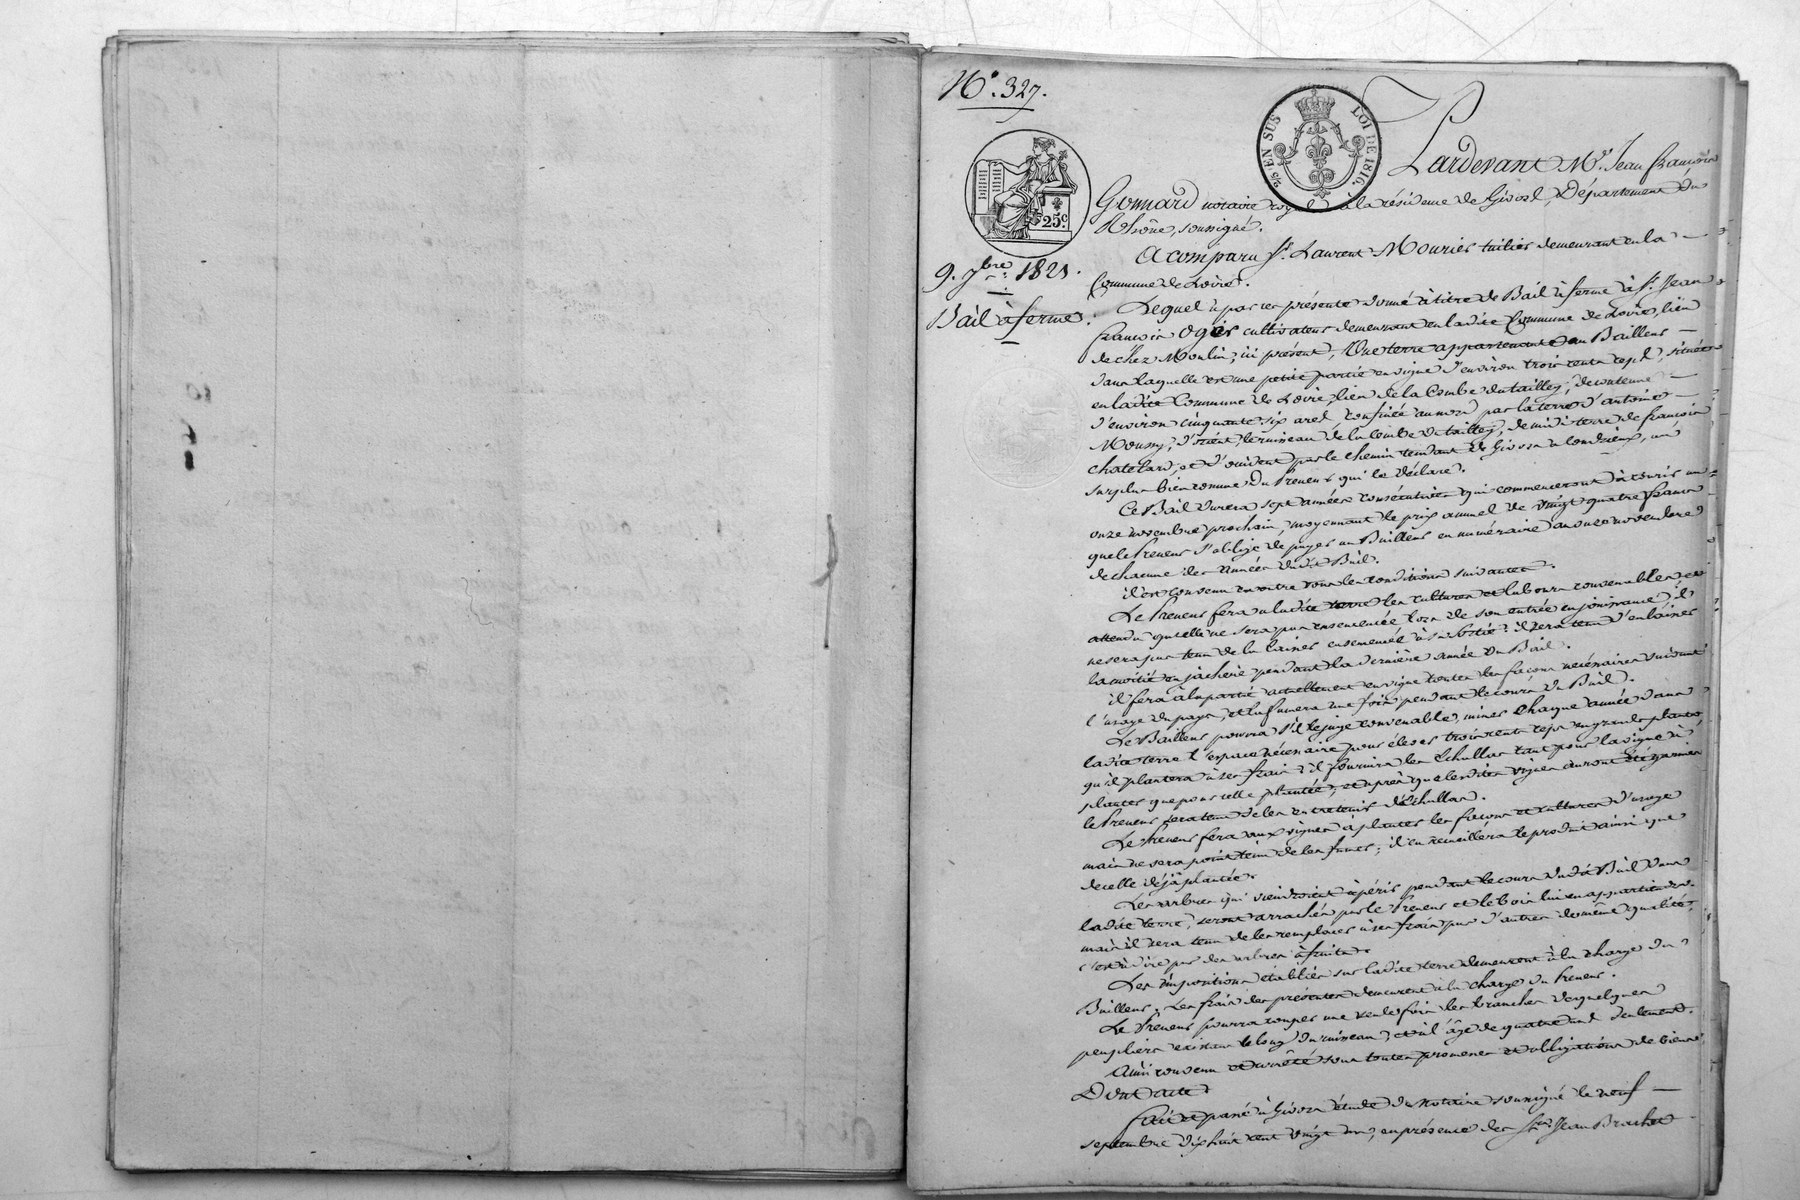 N.° 327.
2/5 EN SUS
LOI DE 1816.
25.c
9. 7bre 1821.
Bail à ferme.
Pardevant Me. Jean françois
Gonnard notaire royal à la résidence de Givors, Département du
Rhône, soussigné.
A comparu sr. Laurent Mourier tuilier demeurant en la
Commune de Loire.
Lequel a par ces présentes donné à titre de Bail à ferme à sr. Jean
françois Ogier cultivateur demeurant en ladite Commune de Loire, lieu
de chez Moulin, ici présent, Une terre appartenant au Bailleur
dans laquelle est une petite partie en vigne d'environ trois cents ceps, située
en ladite Commune de Loire, lieu de la Combe du tailley, de contenue
d'environ cinquante six ares, confinée au nord par la terre d'antoine
Moussy, d'orient le ruisseau de la Combe du tailley, de midi terre de françois
chatelard, et d'occident par le chemin tendant de Givors à Condrieux, au
surplus bien connue du Preneur qui le déclare.
Ce Bail durera sept années consécutives qui commenceront à courir au
onze novembre prochain, moyennant le prix annuel de vingt quatre francs
que le Preneur s'oblige de payer au Bailleur en numéraire au onze novembre
de chacune des années dudit Bail.
il est convenu en outre sous les conditions suivantes.
Le Preneur fera à ladite terre les cultures et labours convenables, et
attendu qu'elle ne sera pas ensemencée lors de son entrée en jouissance, il
ne sera pas tenu de la laisser ensemencée à sa sortie : il sera tenu d'en laisser
la moitié en jachère pendant la dernière année du Bail.
il fera à la partie actuellement en vigne toutes les façons nécessaires suivant
l'usage du pays, et la fumera une fois pendant le cours du Bail.
Le Bailleur pourra s'il le juge convenable, miner chaque année dans
ladite terre l'espace nécessaire pour élever trois cents ceps en grande plante,
qu'il plantera à ses frais : il fournira les Echallas tant pour la vigne à
planter que pour celle plantée, et après que lesdites vignes auront été garnies
le Preneur sera tenu de les entretenir d'Echallas.
Le Preneur fera aux vignes à planter les façons et cultures d'usage
mais ne sera point tenu de les fumer ; il en recueillera le produit ainsi que
de celle déjà plantée.
Les arbres qui viendroient à périr pendant le cours dudit Bail dans
ladite terre, seront arrachés par le Preneur et le bois lui en appartiendra
mais il sera tenu de les remplacer à ses frais par d'autres de même qualité,
c'est à dire par des arbres à fruits.
Les impositions établies sur ladite terre demeurent à la charge du
Bailleur, Les frais des présentes demeurent à la charge du Preneur.
Le Preneur pourra couper une seule fois les branches de quelques
peupliers existans le long du ruisseau, et à l'âge de quatre ans seulement.
Ainsi convenu et arrêté sous toutes promesses et obligations de biens.
Dont acte
fait et passé à Givors étude du notaire soussigné le neuf
septembre dix huit cent vingt un, en présence des srs. Jean Brachet